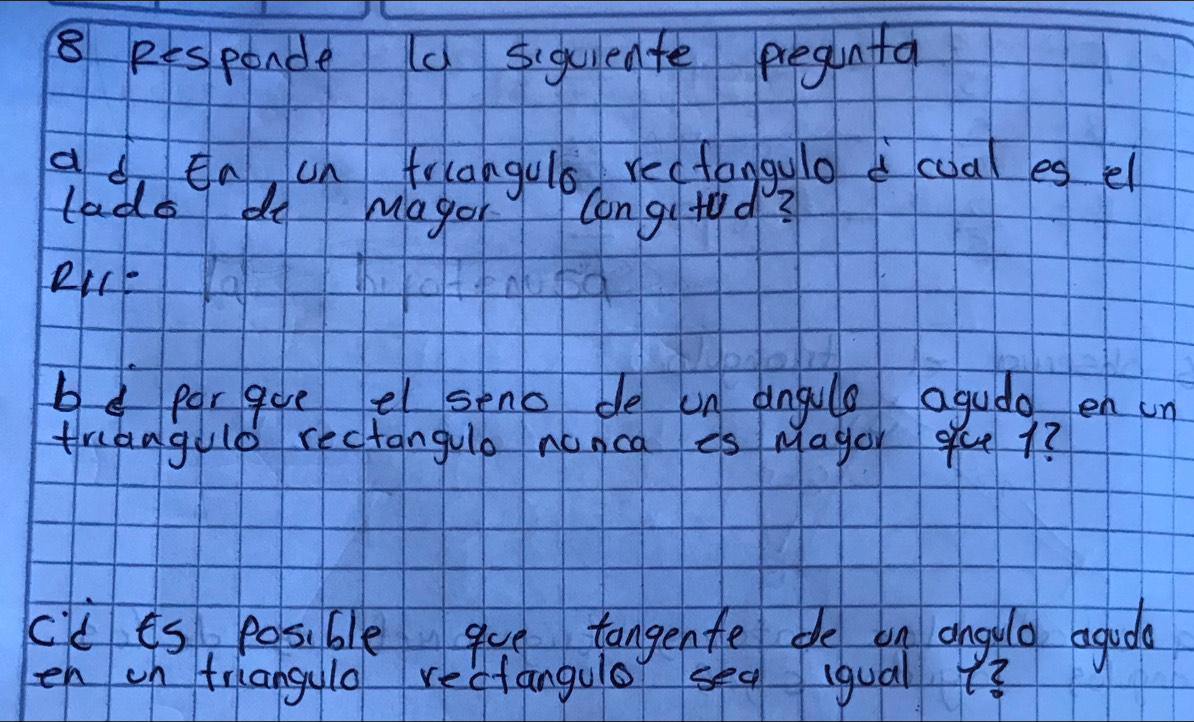 8 Responde la siguiente pregunta
a ¿ En un triangulo rectangulo ¿ cual es el
lado de mayor longitud?
R//=  la hipotenusa
b ¿ por que el seno de un angulo agudo en un
triangulo rectangulo nunca es mayor que 1?
c ¿ Es posible que tangente de un angulo agudo
en un triangulo rectangulo sea igual 1?